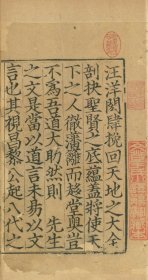 汪洋閎肆挽回天地之大全
剖抉聖賢之底蘊蓋將使天
下之人徹藩籬而趨堂奧豈
不為吾道大助然則　先生
之文是當以道言未易以文
言也其視昌黎公起八代之